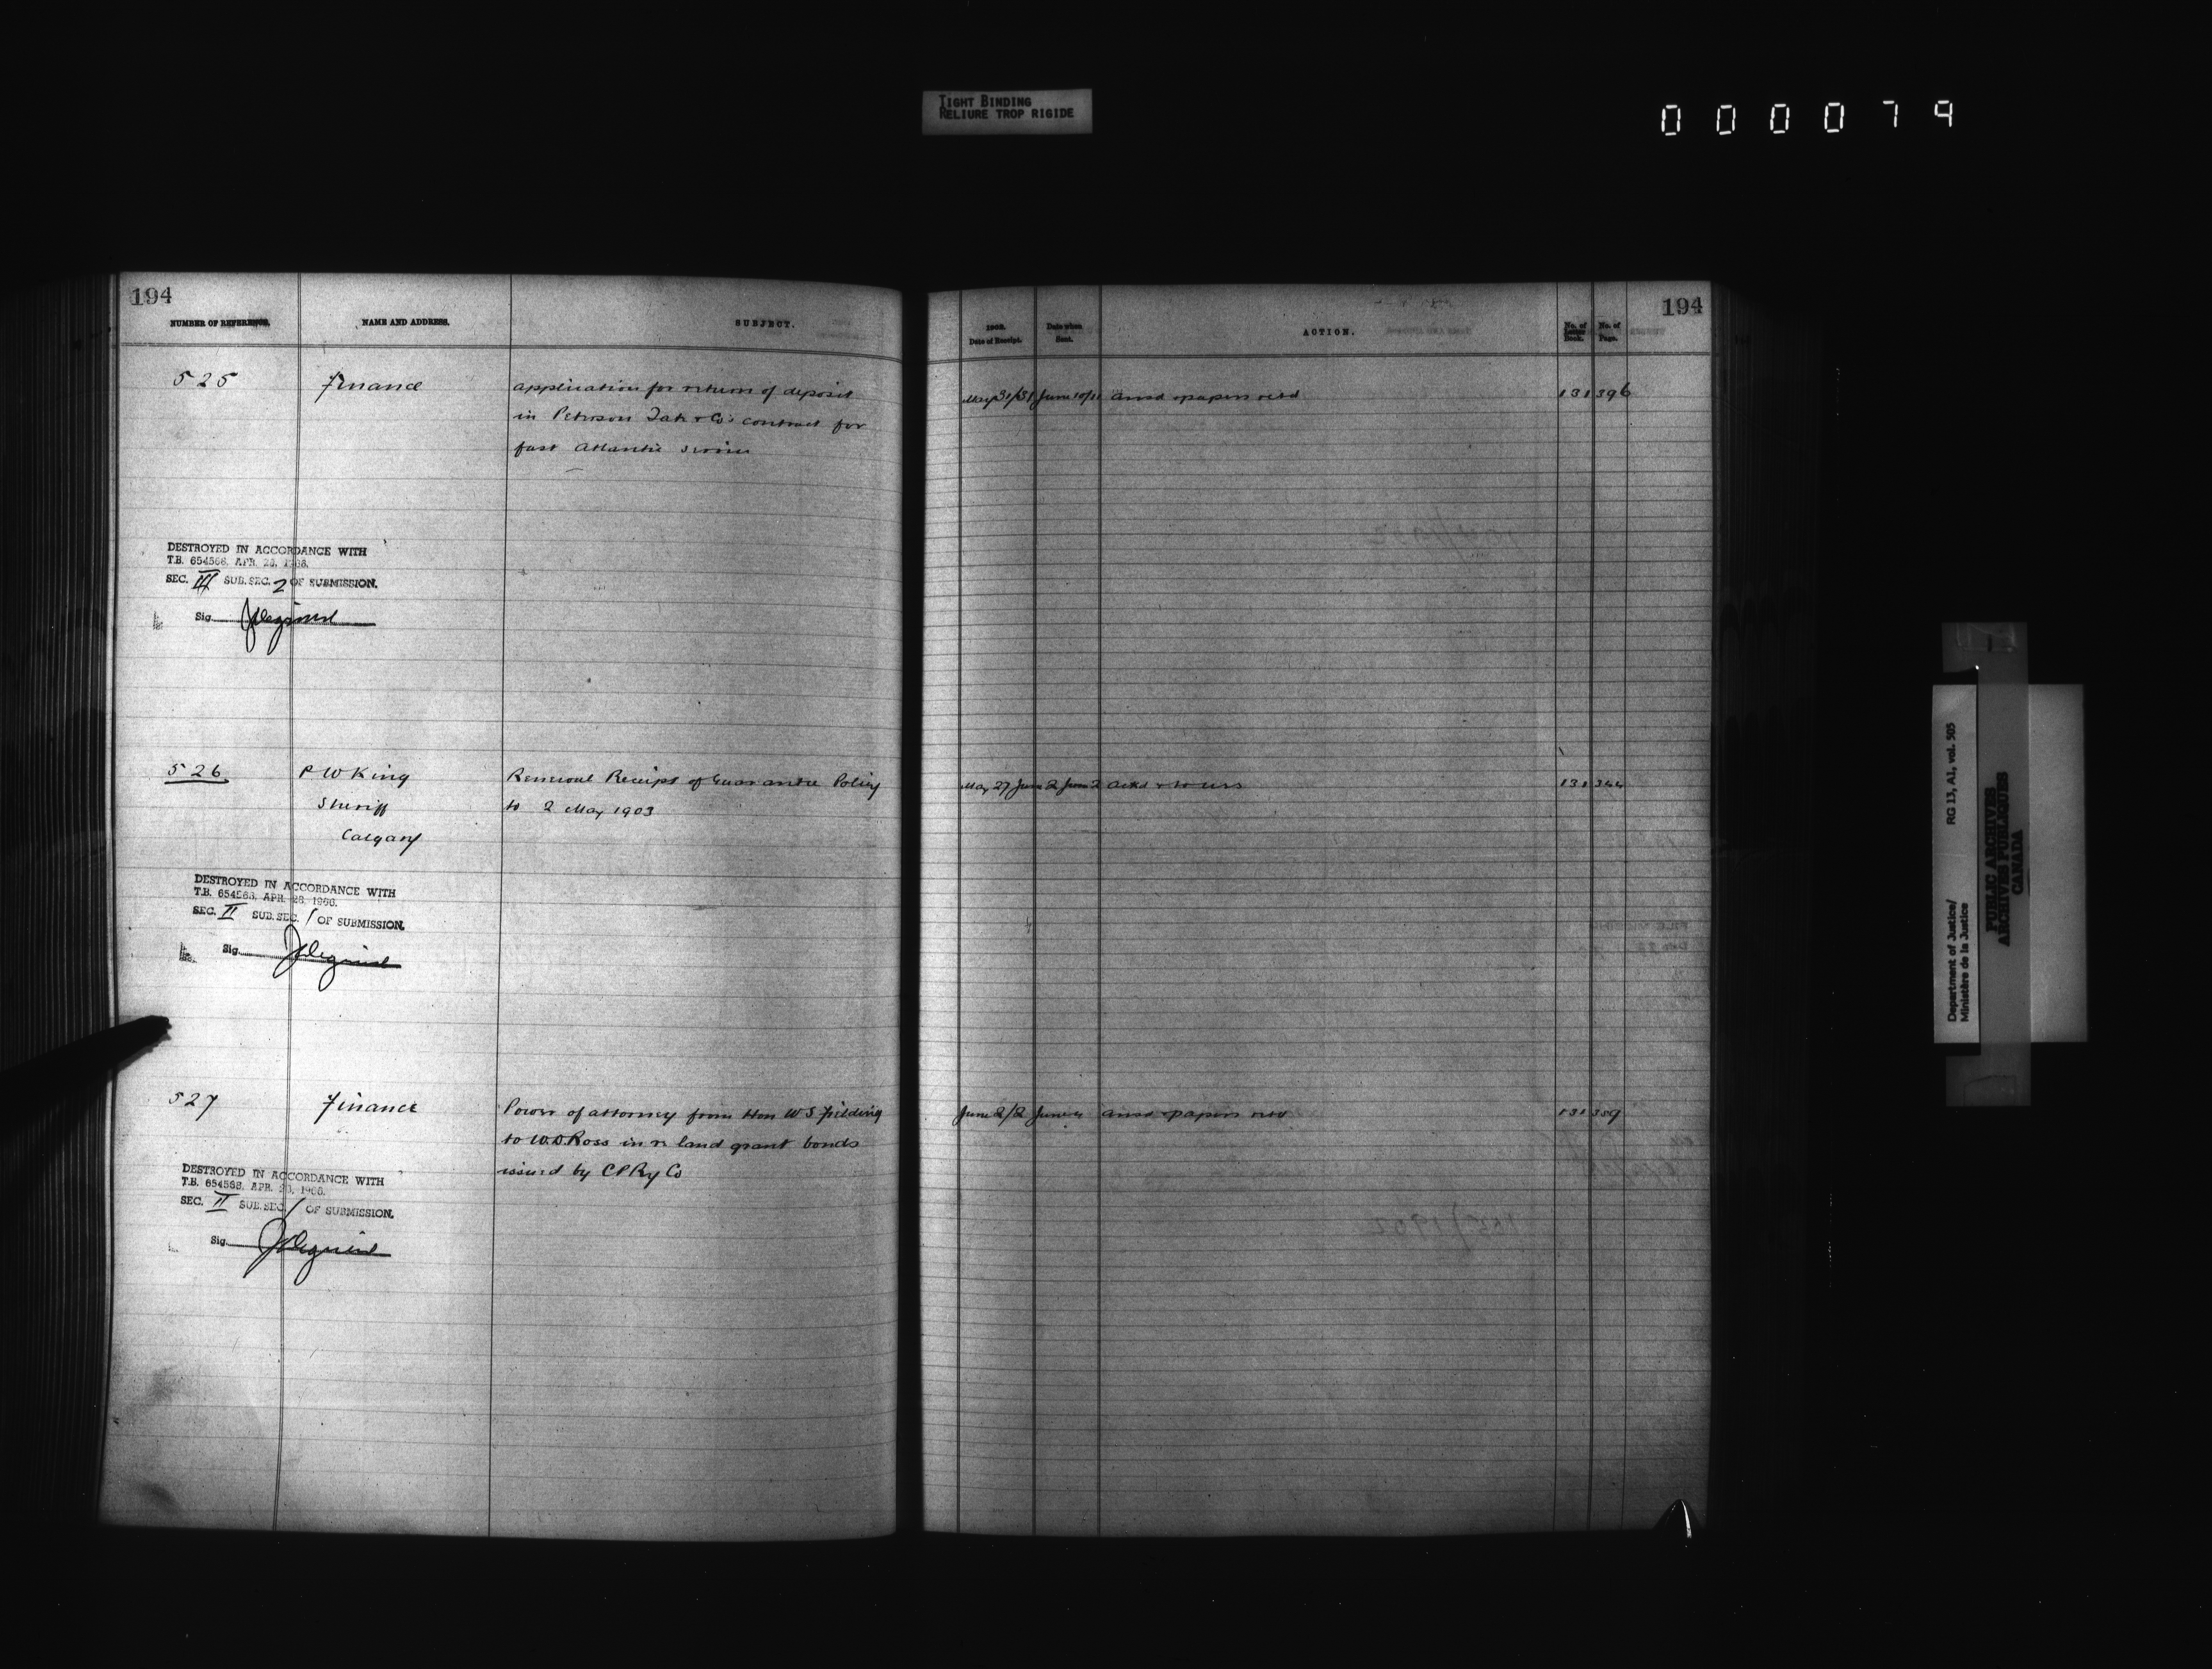 TIGHT BINDING
RELIURE TROP RIGIDE
000079
194
NUMBER OF REFERENCE. NAME AND ADDRESS. SUBJECT.
525 Finance application for return of deposit
in Peterson Tate & Co's contract for
fast Atlantic service
DESTROYED IN ACCORDANCE WITH
T.B. 654568, APR. 28, 1966.
SEC. III SUB. SEC. 2 OF SUBMISSION.
Sig.
526 P W King Renewal Receipt of Guarantee Policy
Sheriff to 2 May 1903
Calgary
DESTROYED IN ACCORDANCE WITH
T.B. 654568, APR. 28, 1966.
SEC. II SUB. SEC. 1 OF SUBMISSION.
Sig.
527 Finance Power of attorney from Hon W S Fielding
to W.D. Ross in re land grant bonds
issued by C P Ry Co
DESTROYED IN ACCORDANCE WITH
T.B. 654568, APR. 28, 1966.
SEC. II SUB. SEC. 1 OF SUBMISSION.
Sig.
194
Date of Receipt. Date when Sent. ACTION. No. of Letter Book. No. of Page.
May 31/31 June 10/11 ansd & papers retd 131 396
May 27 June 2 June 2 ackd 131 344
June 2/2 June 4 ansd & papers retd 131 359
Department of Justice/ RG 13, A1, vol. 505
Ministère de la Justice
PUBLIC ARCHIVES
ARCHIVES PUBLIQUES
CANADA